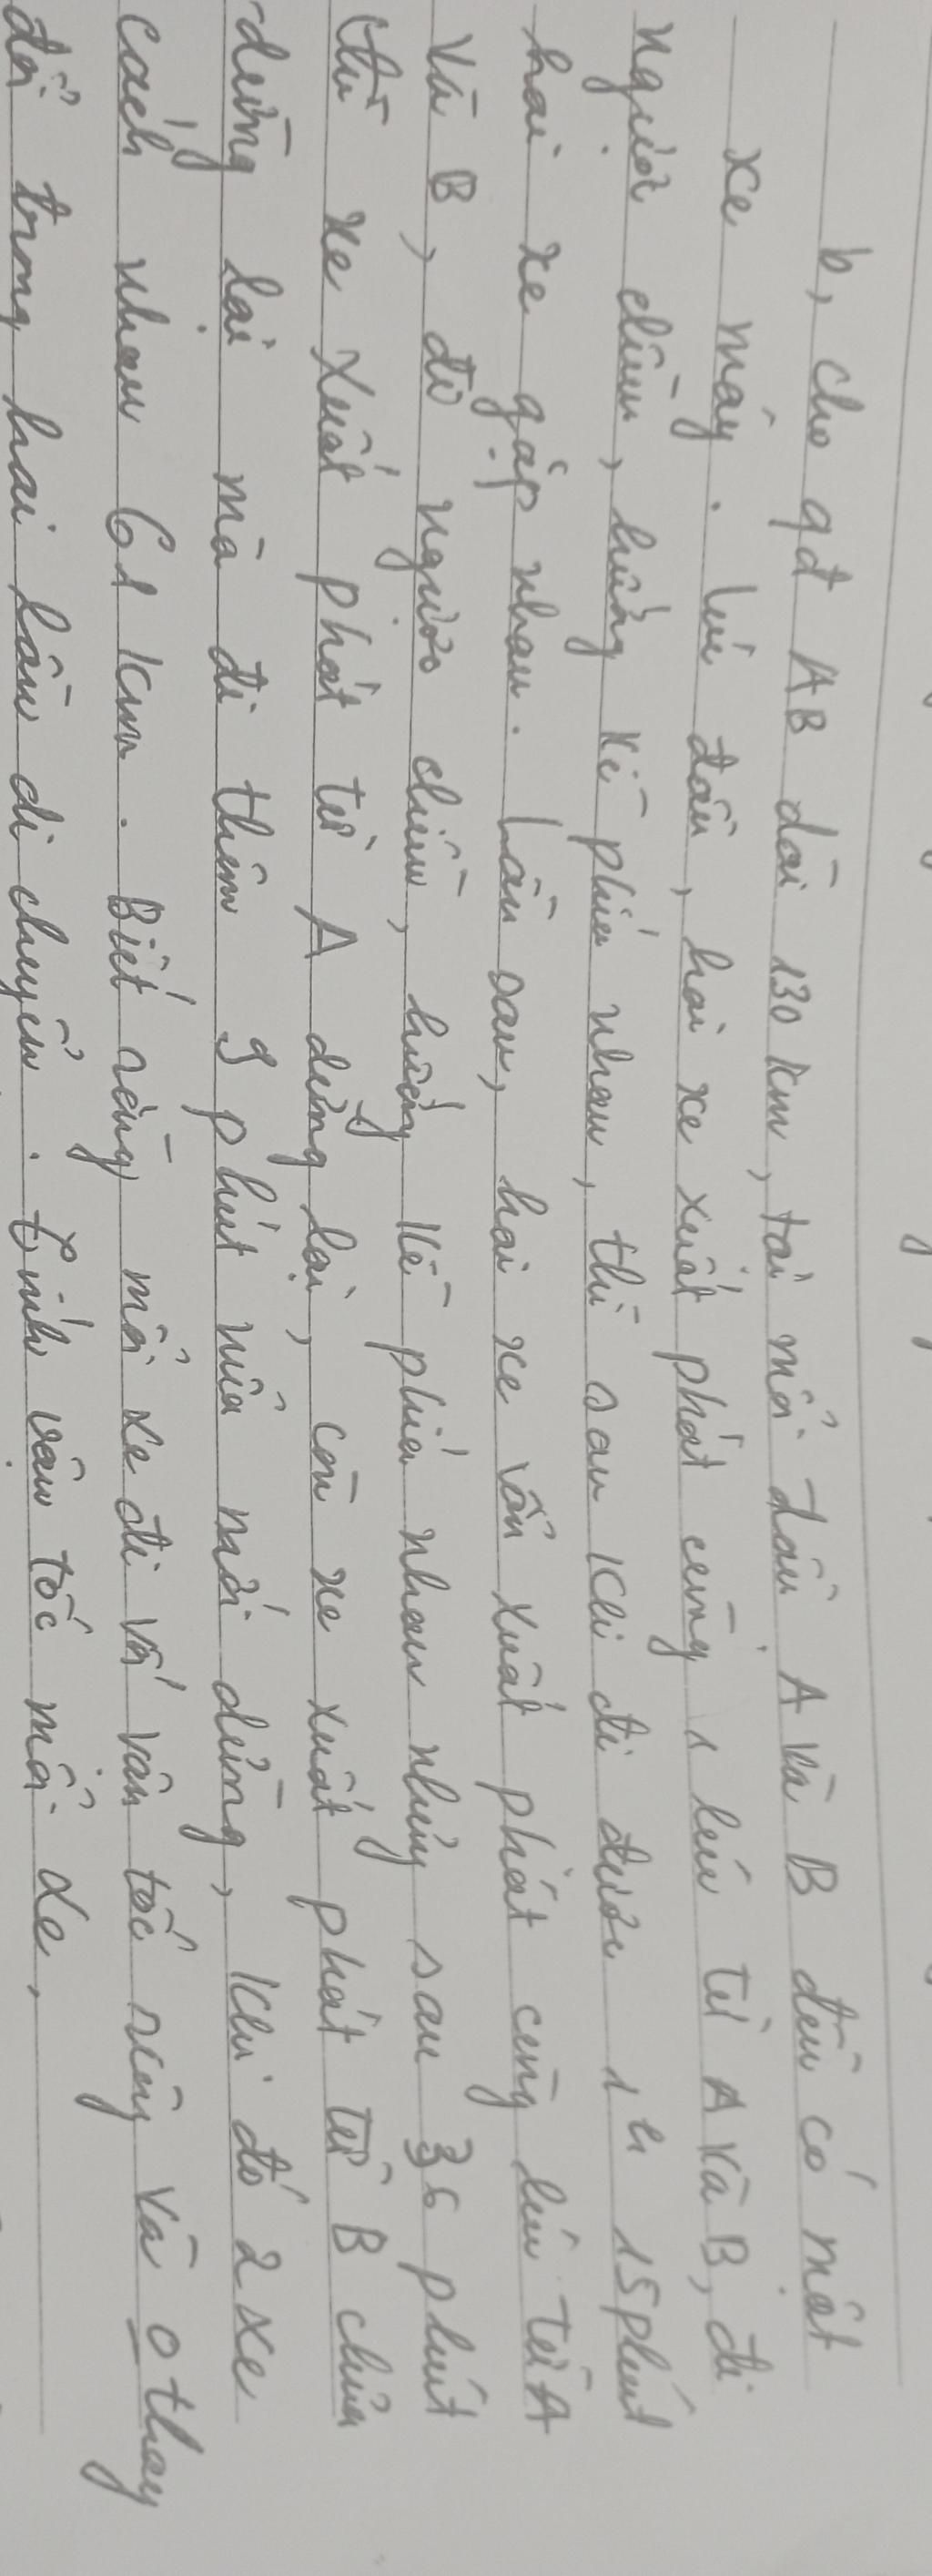 b, cho qđ AB dài 130 km, tại mỗi đầu A và B đều có một
xe máy. Lúc đầu, hai xe xuất phát cùng 1 lúc từ A và B, đi
ngược chiều, hướng về phía nhau, thì sau khi đi được 1h 15 phút
hai xe gặp nhau. Lần sau, hai xe vẫn xuất phát cùng lúc từ A
và B, đi ngược chiều, hướng về phía nhau nhưng sau 36 phút
thì xe xuất phát từ A dừng lại, còn xe xuất phát từ B chưa
dừng lại mà đi thêm 9 phút nữa mới dừng, khi đó 2 xe
cách nhau 61 km. Biết rằng mỗi xe đi với vận tốc riêng và o thay
đổi trong hai lần di chuyển. Tính vận tốc mỗi xe.